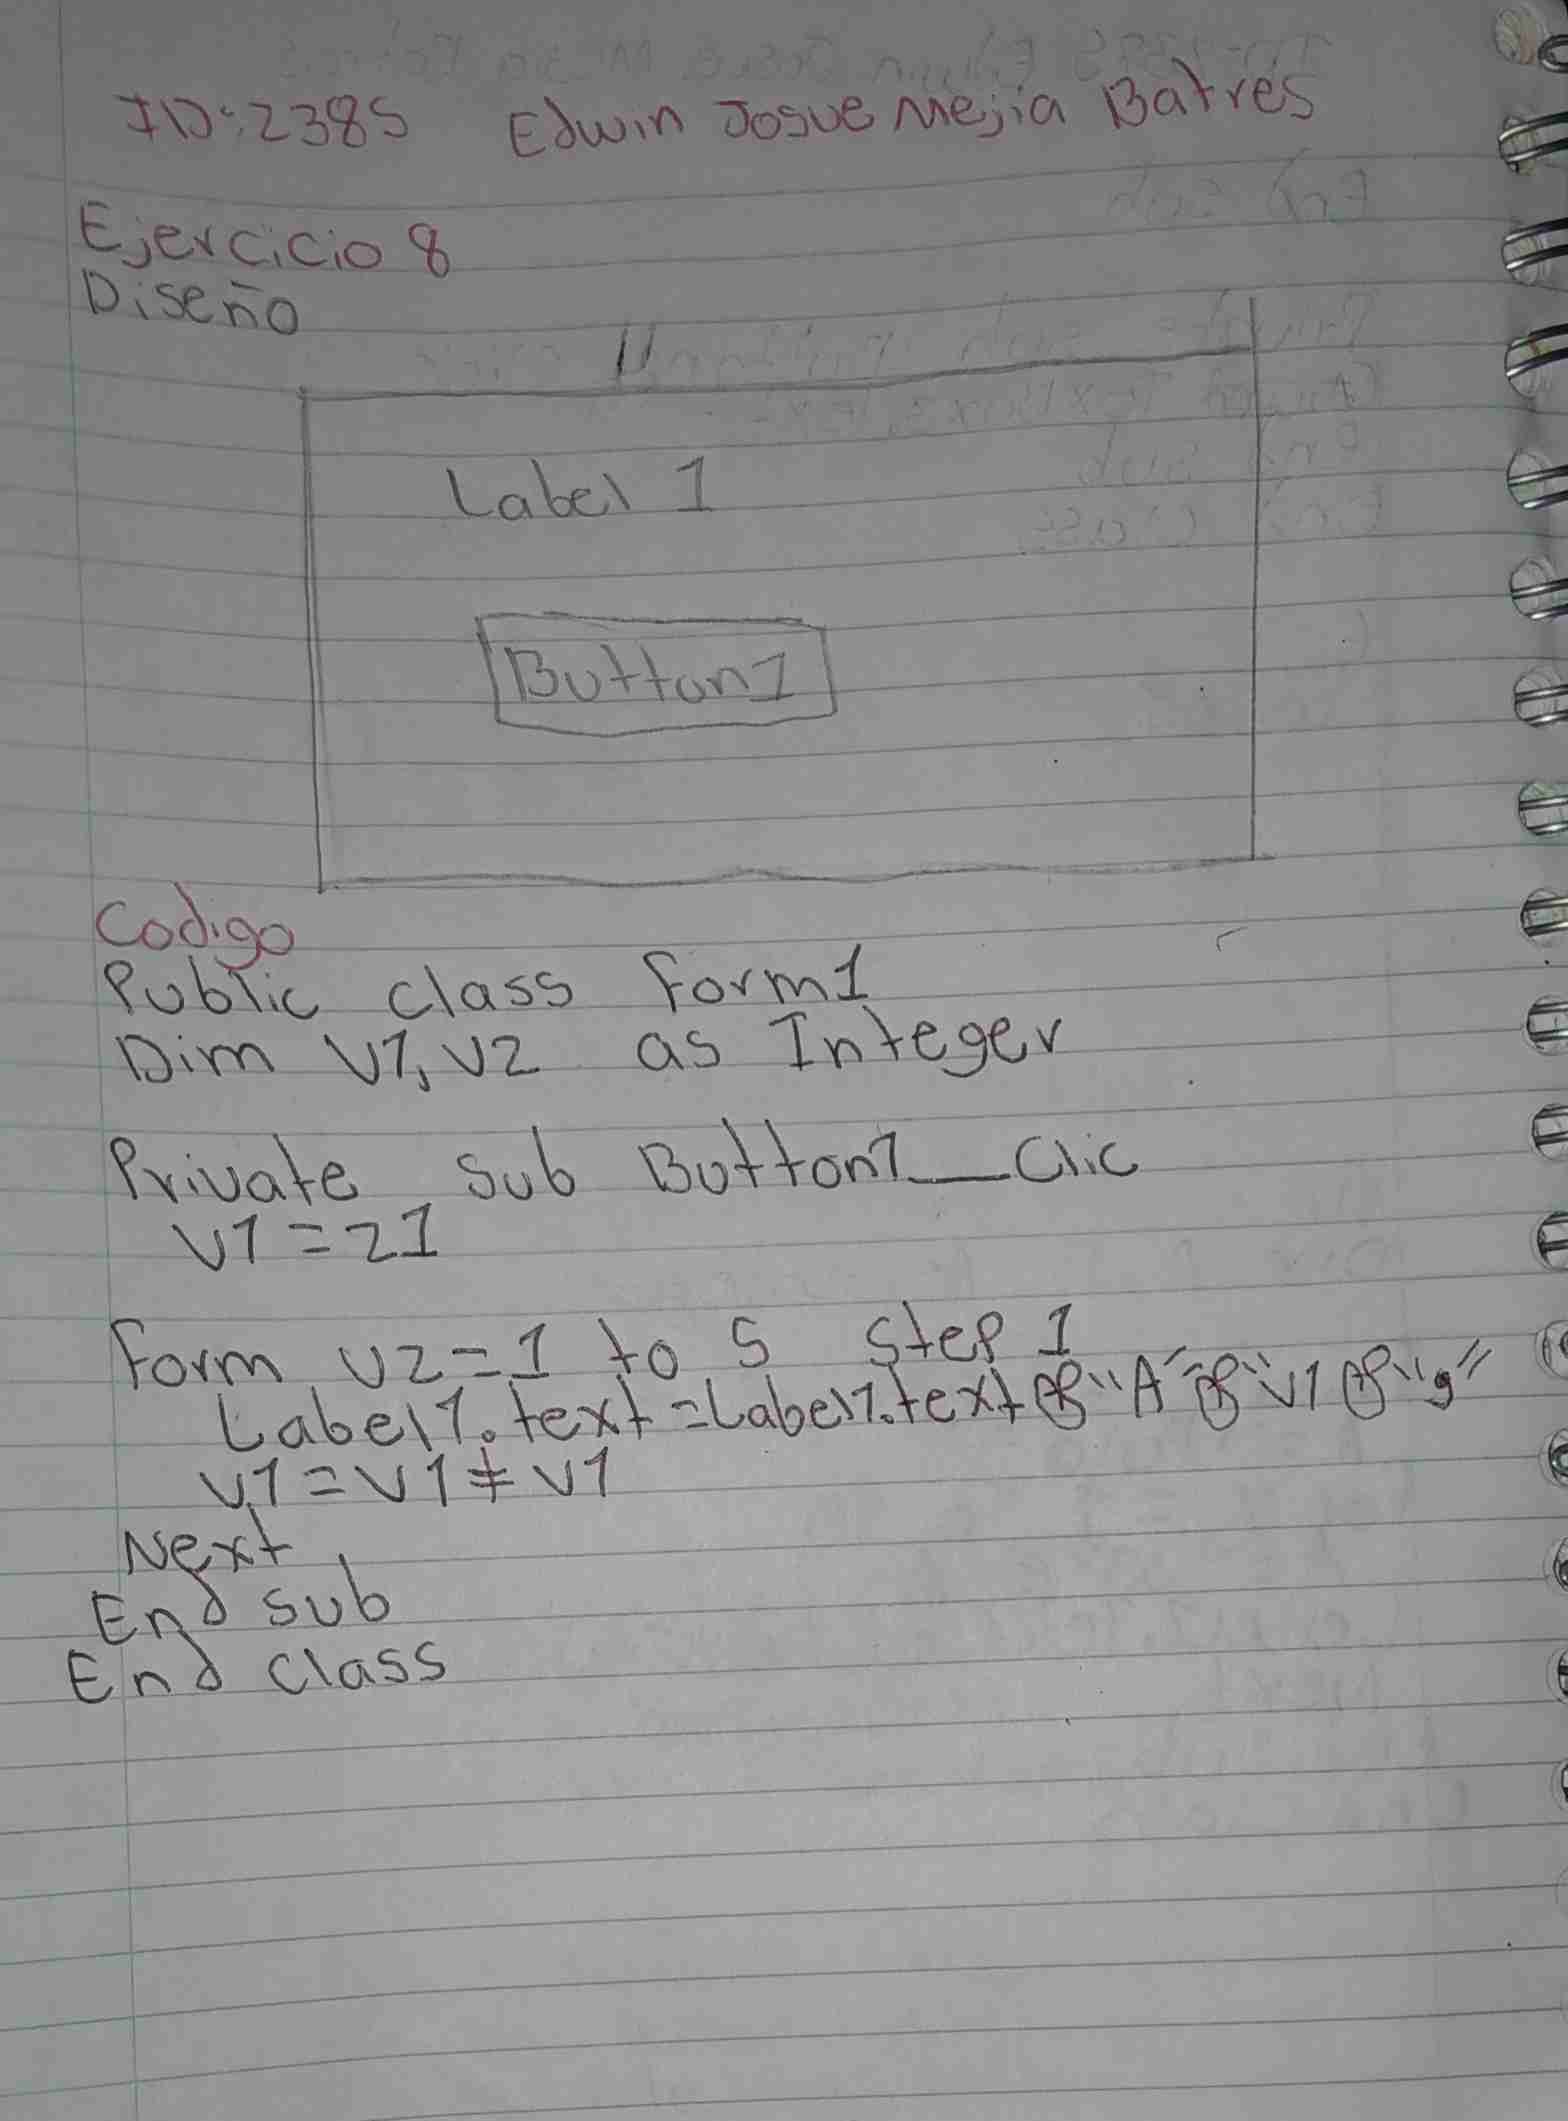 ID: 2385 Edwin Josue Mejia Batres
Ejercicio 8
Diseño
Label 1
Button1
Codigo
Public class Form1
Dim V1, V2 as Integer
Private Sub Button1_Clic
V1 = 21
Form V2 = 1 to 5 Step 1
Label1.text = Label1.text & "A" & "V1 & "9"
V1 = V1 + V1
Next
End sub
End class